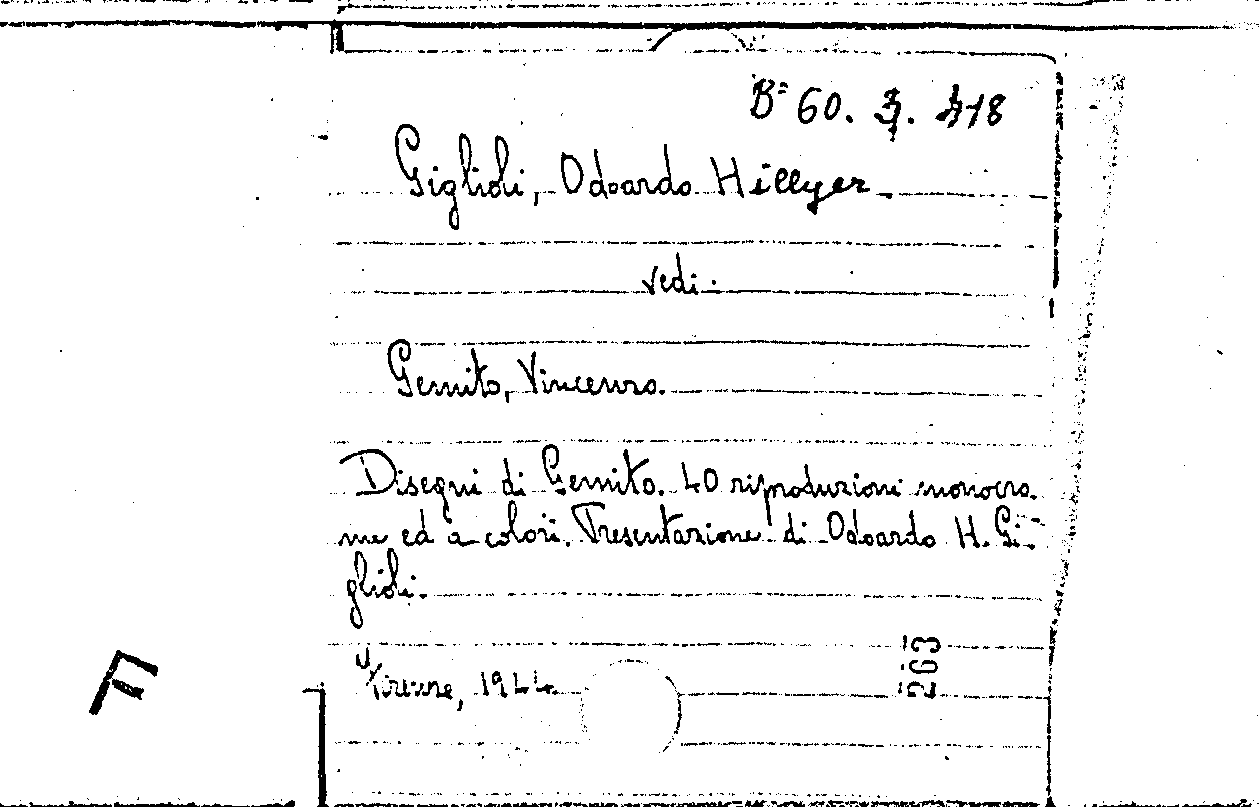 Bº 60. 7. 418
Giglioli, Odoardo Hillyer
vedi:
Gemito, Vincenzo.
Disegni di Gemito. 40 riproduzioni monocro.
me ed a colori. Presentazione di Odoardo H. Gi-
glioli.
Firenze, 1944.
263
F